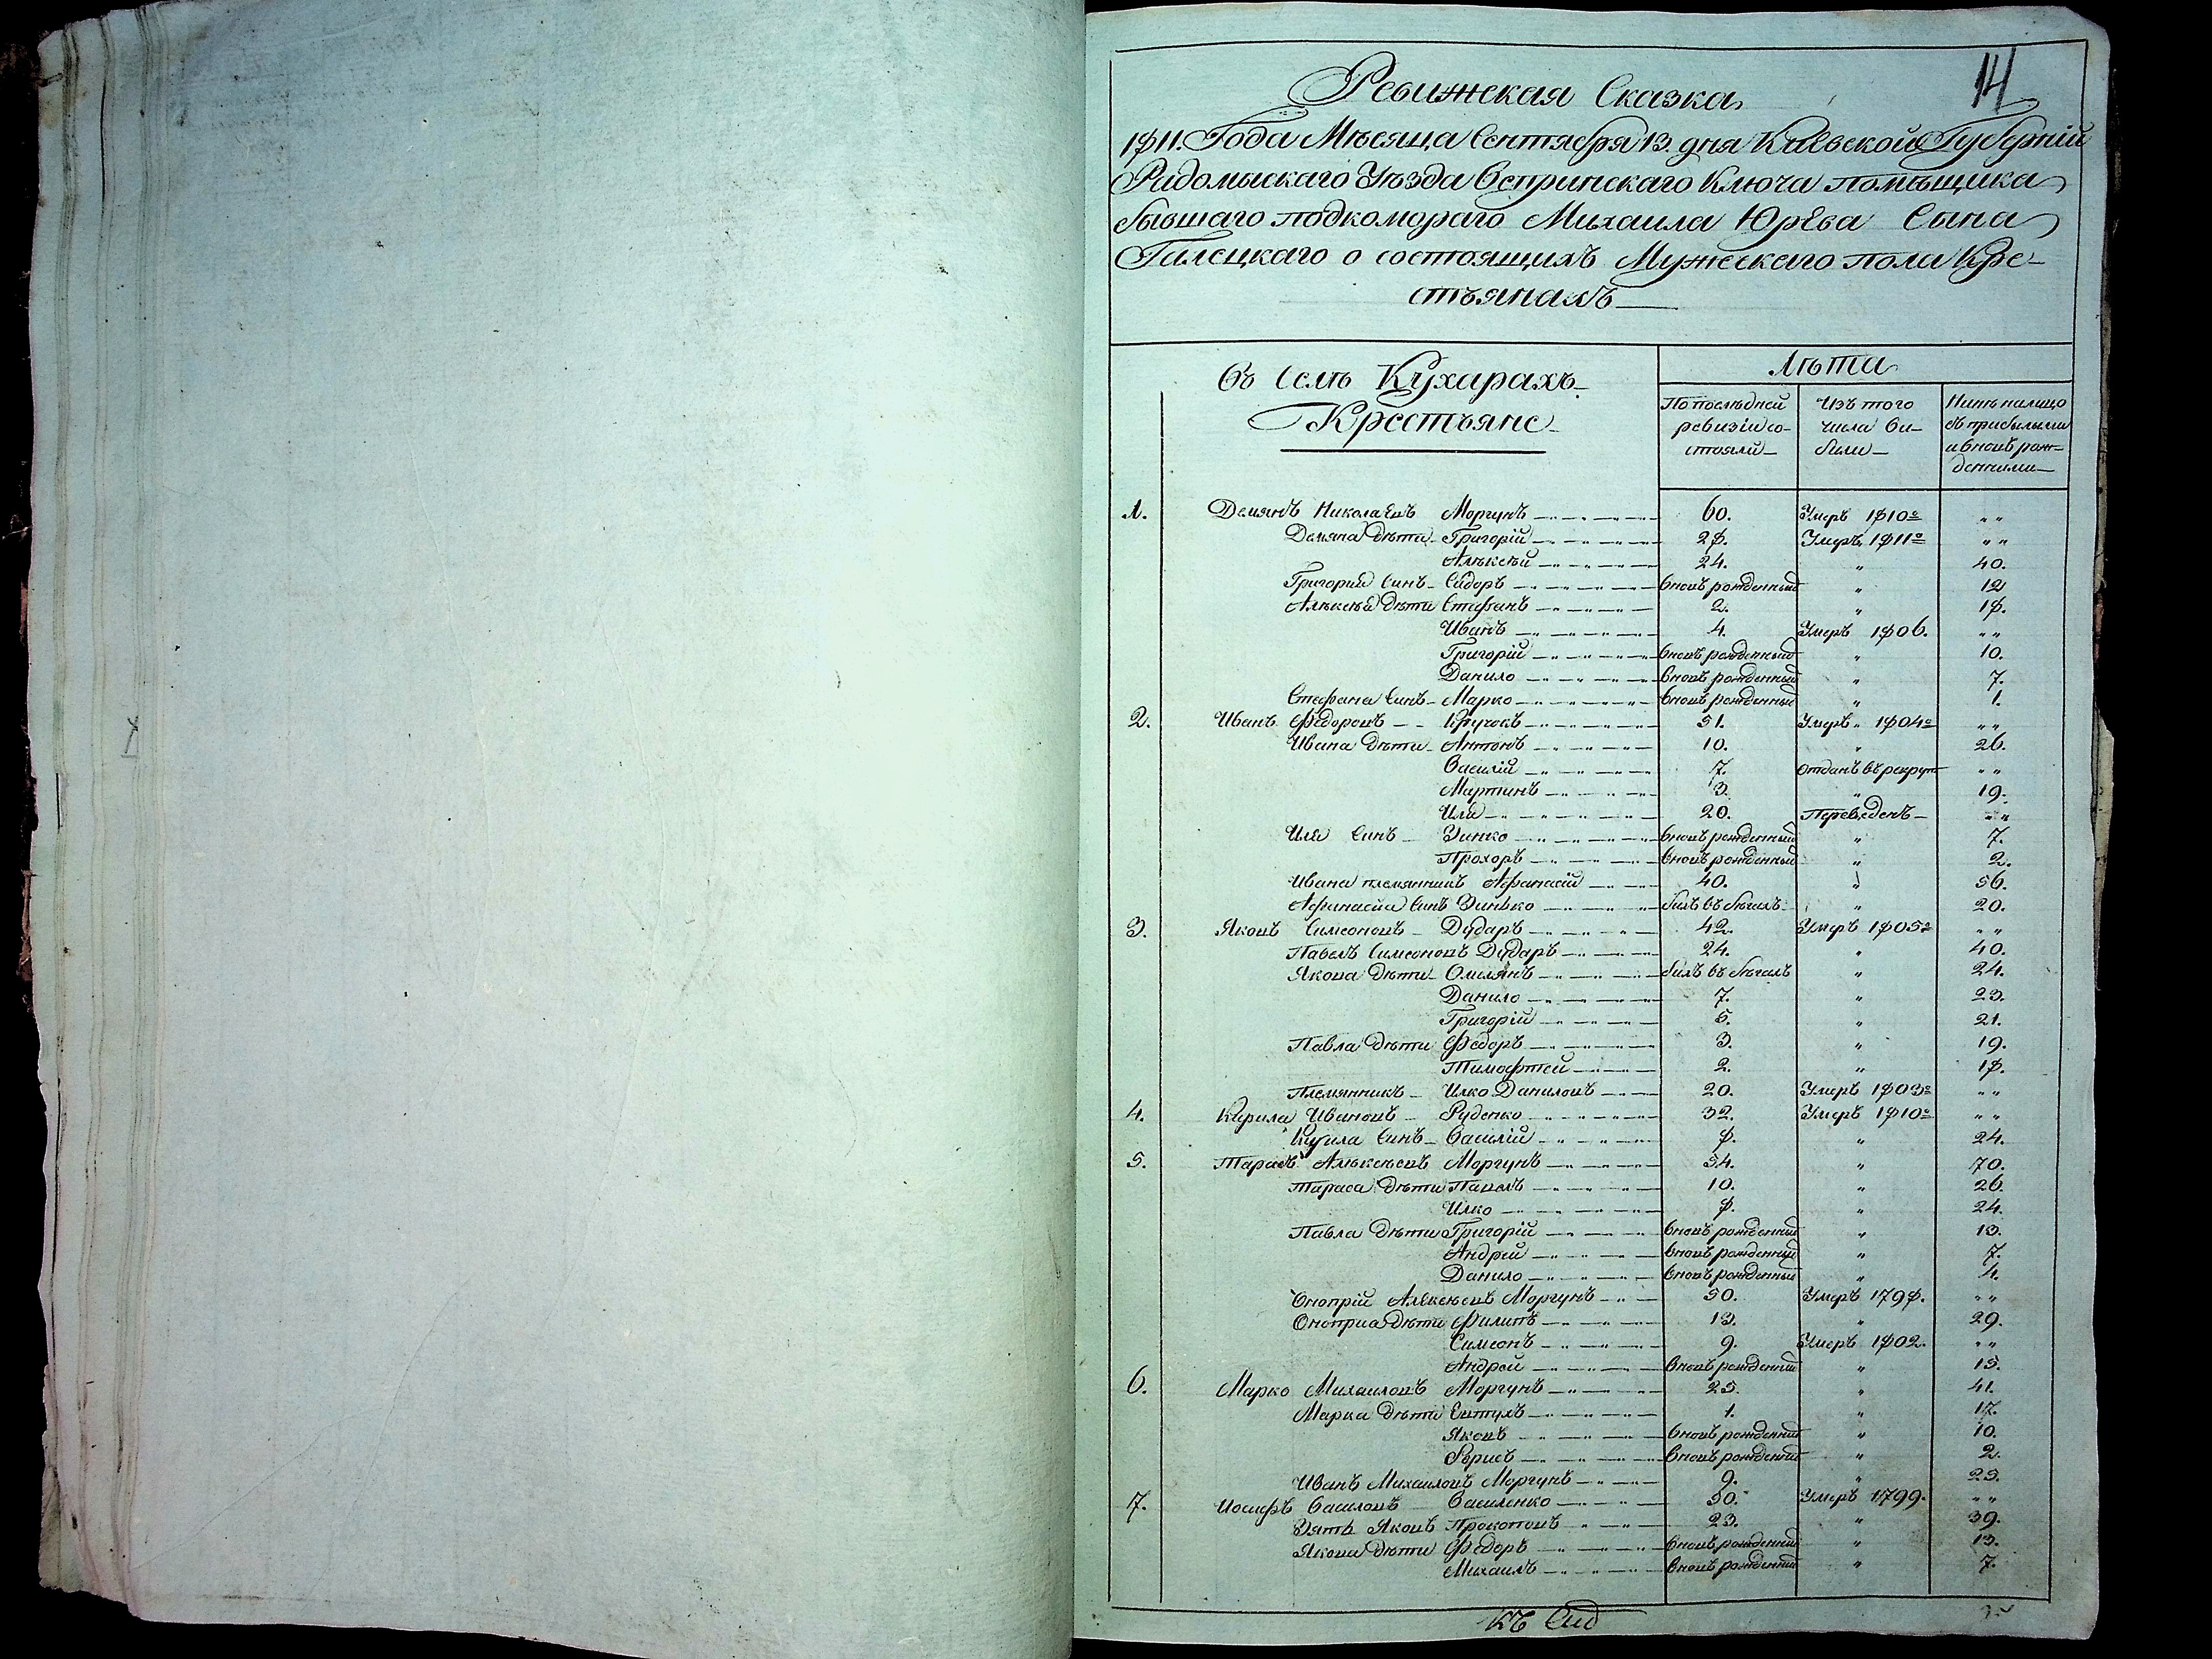 14
Ревижская Сказка
1811. Года Мѣсяца Сентября 13. дня Киевской Губерніи
Радомыскаго Уѣзда Вепринскаго Ключа помѣщика
бывшаго подкомораго Михаила Юрева Сына
Галецкаго о состоящихъ Мужескаго пола Кре-
стьянахъ
Лѣта
въ Селѣ Кухарахъ
Крестьяне
По послѣдней ревизіи со- стояли
Изъ того числа ви- были
Нинѣ налицо съ прибылыми и вновь рож- денними
1. Демянъ Николаевъ Моргунъ 60. Умеръ 1810г „ „
Демяна Дѣти Григорій 28. Умеръ 1811г „ „
Алѣксѣй 24. „ 40.
Григория Синъ Сидоръ вновъ рожденный „ 12
Алѣксѣя Дѣти Стефанъ 2. „ 18.
Иванъ 4. Умеръ 1806. „ „
Григорій вновъ рожденный „ 10.
Данило вновъ рожденный „ 7.
Стефана Синъ Марко вновъ рожденный „ 1.
2. Иванъ Федоровъ Кручокъ 51. Умеръ 1804г „ „
Ивана Дѣти Антонъ 10. „ 26.
Василій 7. отданъ въ рекрут „ „
Мартинъ 3. „ 19.
Иля 20. Переведенъ „ „
Иля Синъ Зинко вновъ рожденный „ 7.
Прохоръ вновъ рожденный „ 2.
Ивана племянникъ Афанасій 40. „ 56.
Афанасия Синъ Зинько билъ въ бѣгахъ „ 20.
3. Яковъ Симеоновъ Дударъ 42. Умеръ 1805г „ „
Павелъ Симеоновъ Дударъ 24. „ 40.
Якова Дѣти Омелянъ билъ въ бѣгахъ „ 24.
Данило 7. „ 23.
Григорій 5. „ 21.
Павла Дѣти Федоръ 3. „ 19.
Тимофтей 2. „ 18.
Племянникъ Илко Даниловъ 20. Умеръ 1803г „ „
4. Кирила Ивановъ Руденко 32. Умеръ 1810г „ „
Кирила Синъ Василій 8. „ 24.
5. Тарасъ Алѣксѣевъ Моргунъ 54. „ 70.
Тараса Дѣти Павелъ 10. „ 26.
Илко 8. „ 24.
Павла Дѣти Григорій вновъ рожденний „ 13.
Андрей вновъ рожденний „ 7.
Данило вновъ рожденный „ 4.
Онопрій Алексѣевъ Моргунъ 50. Умеръ 1798. „ „
Оноприа Дѣти Филипъ 13. „ 29.
Симеонъ 9. Умеръ 1802. „ „
Андрей вновъ рожденний „ 15.
6. Марко Михаиловъ Моргунъ 25. „ 41.
Марка Дѣти Евтухъ 1. „ 17.
Яковъ вновъ рожденний „ 10.
Борисъ вновъ рожденний „ 2.
Иванъ Михаиловъ Моргунъ 9. „ 25.
7. Иосифъ Василовъ Василенко 50. Умеръ 1799. „ „
Зять Яковъ Прокоповъ 23. „ 39.
Якова Дѣти Федоръ вновъ рожденний „ 13.
Михаилъ вновъ рожденний „ 7.